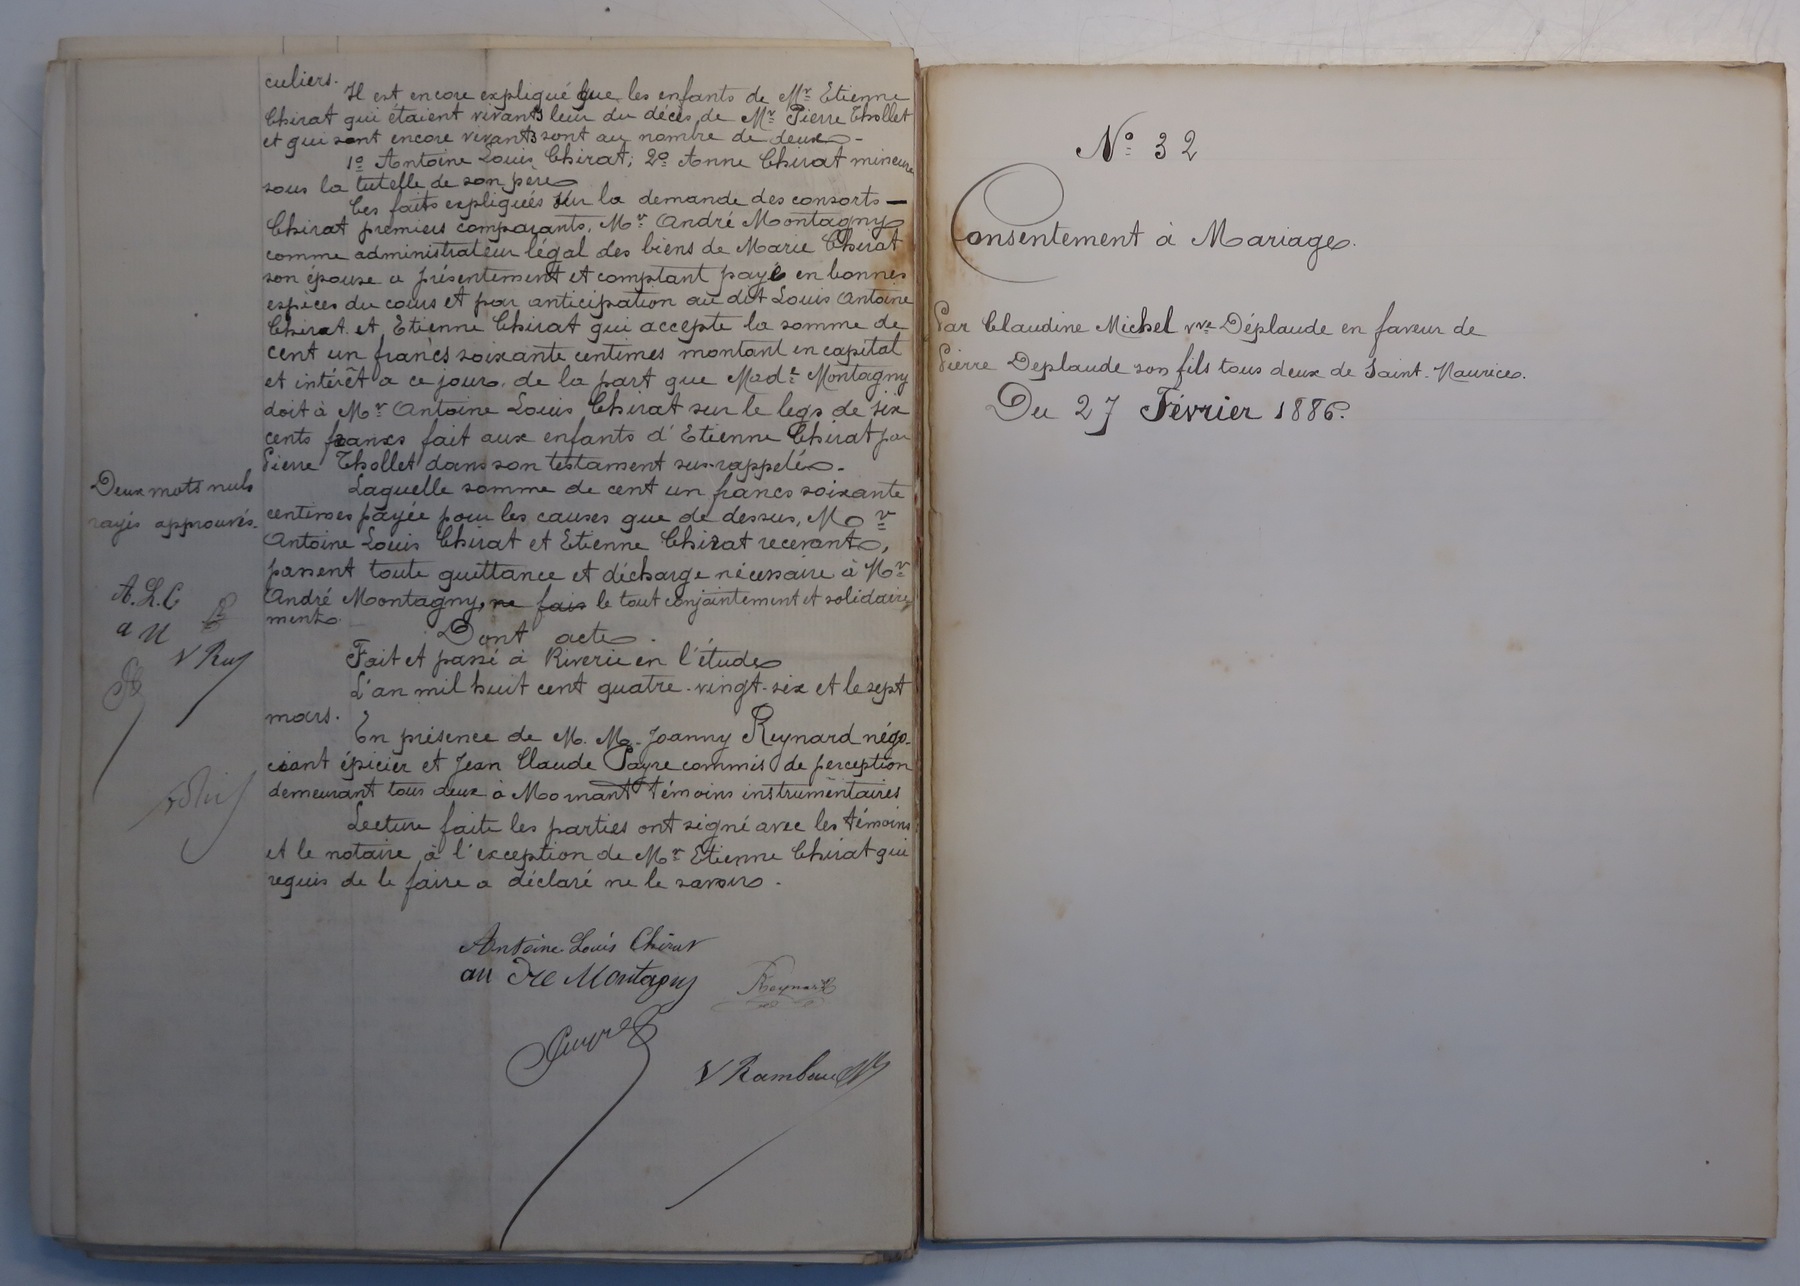 culiers.
Il est encore expliqué que les enfants de Mr Etienne
Chirat qui étaient vivants leur du décès de Mr Pierre Thollet
et qui sont encore vivants sont au nombre de deux -
1o Antoine Louis Chirat; 2o Anne Chirat mineure
sous la tutelle de son père
Ces faits expliqués sur la demande des consorts -
Chirat premiers comparants, Mr André Montagny
comme administrateur légal des biens de Marie Chirat
son épouse a présentement et comptant payé en bonnes
espèces du cours et par anticipation au dit Louis Antoine
Chirat et Etienne Chirat qui accepte la somme de
cent un francs soixante centimes montant en capital
et intérêt a ce jour, de la part que Made Montagny
doit à Mr Antoine Louis Chirat sur le legs de six
cents francs fait aux enfants d'Etienne Chirat par
Pierre Thollet dans son testament sus-rappelé -
Laquelle somme de cent un francs soixante
centimes payée pour les causes que de dessus, Mr
Antoine Louis Chirat et Etienne Chirat recevant,
passent toute quittance et décharge nécessaire à Mr
André Montagny, ne fais le tout conjointement et solidaire
ment.
Dont acte.
Fait et passé à Riverie en l'étude
L'an mil huit cent quatre-vingt-six et le sept
mars.
En présence de M. M. Joanny Reynard négo-
ciant épicier et Jean Claude Payre commis de perception
demeurant tous deux à Mornant témoins instrumentaires
Lecture faite les parties ont signé avec les témoins
et le notaire à l'exception de Mr Etienne Chirat qui
requis de le faire a déclaré ne le savoir.
Deux mots nuls
rayés approuvés.
A.L.C
a M
V Ry
Antoine Louis Chirat
an Dre Montagny
Reynard
V Rambaud
No 32
Consentement à Mariage.
Par Claudine Michel vve Déplaude en faveur de
Pierre Deplaude son fils tous deux de Saint-Maurice.
Du 27 Février 1886.